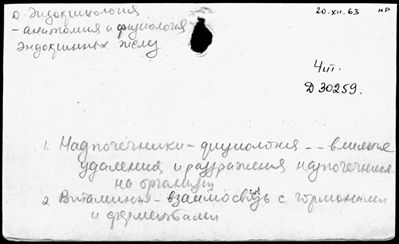 Д. Эндокринология
20.XII.63 НР
- анатомия и физиология
эндокринных желез
Чит.
Д 30259.
1. Надпочечники - физиология -- влияние
удаления и раздражения надпочечника
на организм
2 Витамины - взаимосвязь с гормонами
и ферментами